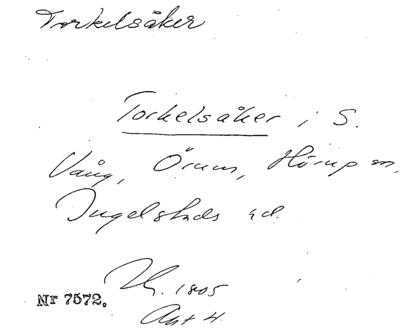 Torkelsåker
Torkelsåker i S.
Vång, Örum, Hörup sn,
Ingelstads hd.
1805
Akt 4.
Nr 7572.